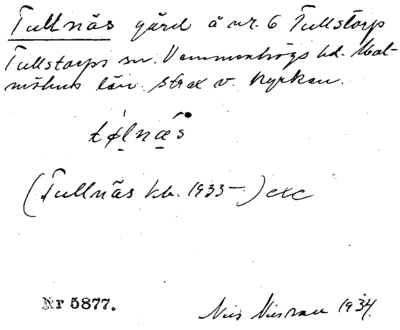 Tullnäs gård å nr. 6 Tullstorp
Tullstorps sn. Vemmenhögs hd. Mal-
möhus län. strax v. kyrkan.
tǿlnæ̀s
(Tullnäs kb. 1933–) exc
Nr 5877.
Nils 1934.